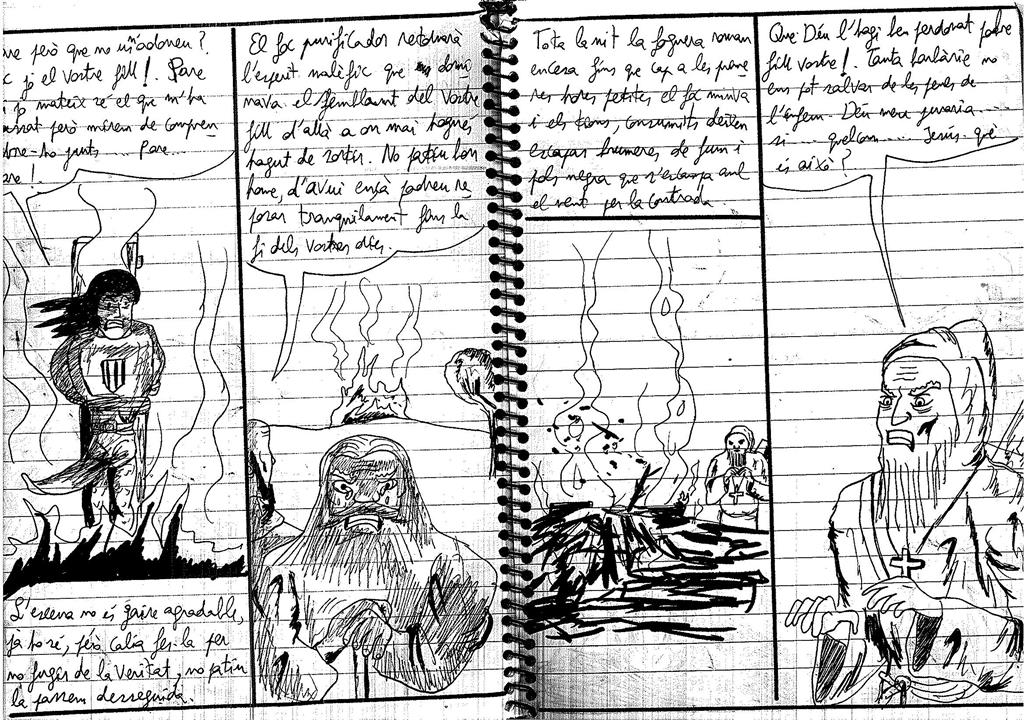 però que no m'adoneu?
jo el vostre fill! Pare
jo mateix sé el que m'ha
però mirem de compren
dre-ho junts ..... Pare...
are!
L'escena no és gaire agradable,
ja ho sé, però calia fer-la per
no fugir de la veritat, no patiu
la passem desseguida.
El foc purificador retornarà
l'esperit malèfic que domi
nava el semblant del vostre
fill d'allà a on mai hagués
hagut de sortir. No patiu bon
home, d'avui ençà podreu re
posar tranquilament fins la
fi dels vostres dies.
Tota la nit la foguera roman
encesa fins que cap a les prime
res hores petites el foc minva
i els tions, consumits deixen
escapar brumeres de fum i
pols negra que s'escampa amb
el vent per la contrada.
Que Déu l'hagi ben perdonat pobre
fill vostre!. Tanta barbàrie no
ens pot salvar de les penes de
l'infern. Déu meu juraria
si quelcom ...... Jesús què
és això?